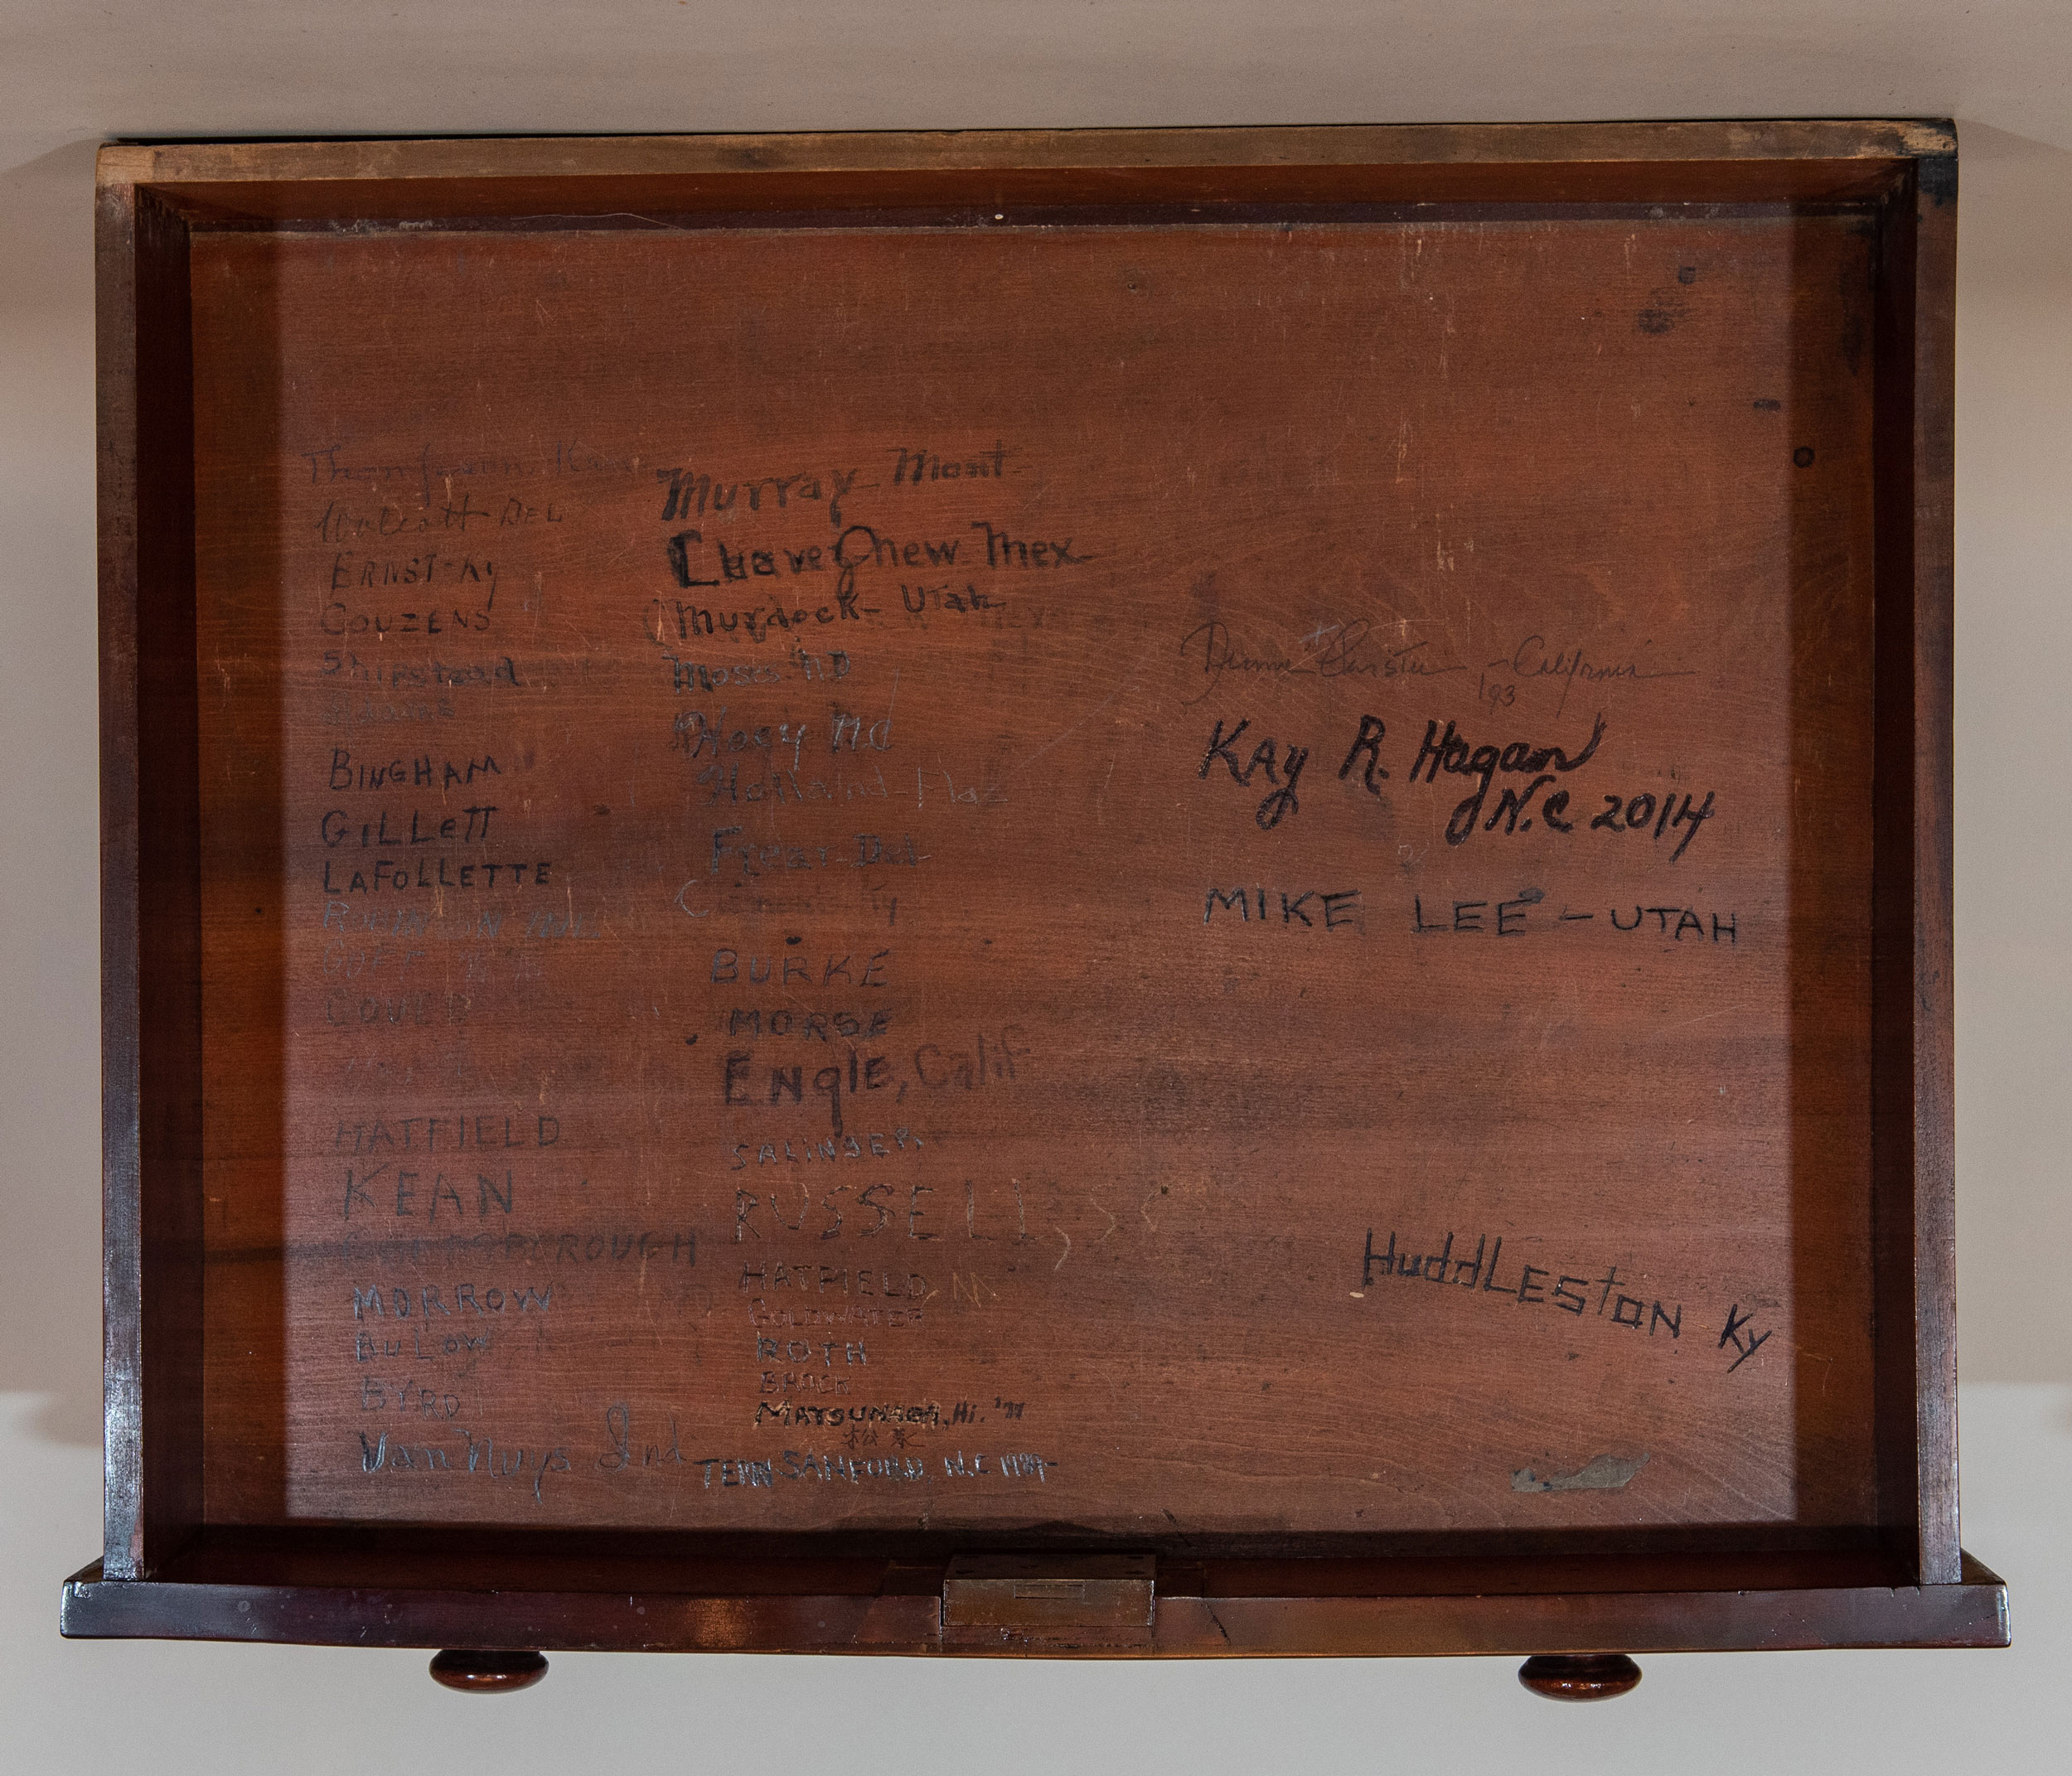 Wolcott DEL
ERNST-Ky
COUZENS
Shipstead
BINGHAM
GILLETT
LAFOLLETTE
ROBINSON IND.
GOFF
HATFIELD
KEAN
MORROW
BULOW
BYRD
Van Nuys Ind
Murray Mont
Chavez New Mex
Murdock-Utah
Moses ND
Hoey NC
Holland-Fla
Frear-Del
BURKE
MORSE
ENglE, Calif
SALINGER
RUSSELL, SC
HATFIELD
GOLDWATER
ROTH
BROCK
MATSUNAGA, Hi. '77
松永
SANFORD, N.C
Dianne Feinstein - California
'93
KAy R. Hagan
N.C 2014
MIKE LEE - UTAH
HuddLEStON Ky